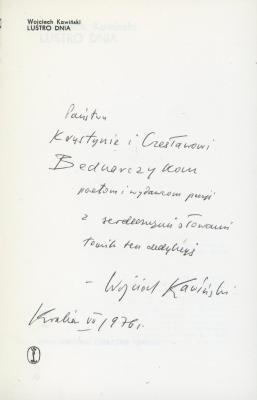 Wojciech Kawiński
LUSTRO DNIA
Państwu
Krystynie i Czesławowi
Bednarczykom
poetom i wydawcom poezji
z serdecznymi słowami
tomik ten dedykuję
– Wojciech Kawiński
Kraków VI 1976 r.